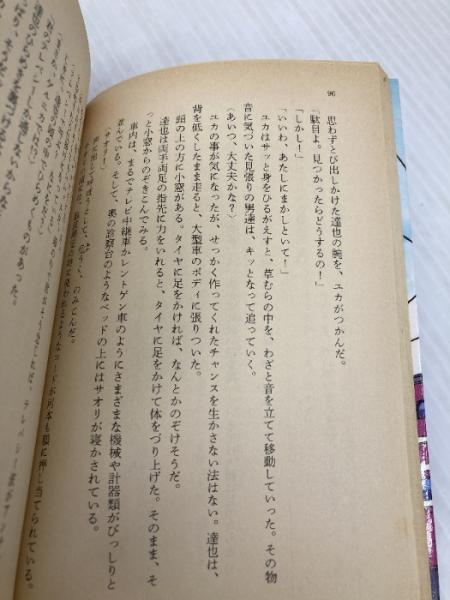 96
思わずとび出しかけた達也の腕を、ユカがつかんだ。
「駄目よ。見つかったらどうするの！」
「しかし！」
「いい、あたしにまかしといて！」
ユカはサッと身をひるがえすと、草むらの中を、わざと音を立てて移動していった。その物
音に気づいた見張りの男達は、キッとなって追っていく。
（あいつ、大丈夫かな？）
ユカの事が気になったが、せっかく作ってくれたチャンスを生かさない法はない。達也は、
背を低くしたまま走ると、大型車のボディに張りついた。
頭の上の方に小窓がある。タイヤに足をかければ、なんとかのぞけそうだ。
達也は両手両足の指先に力をいれると、タイヤに足をかけて体をづり上げた。そのまま、そ
っと小窓からのぞきこんでみる。
車内は、まるでテレビ中継車かレントゲン車のようにさまざまな機械や計器類がびっしりと
並んでいる。そして、奥の診察台のようなベッドの上にはサオリが寝かされている。
（サオリ！）
声に出して呼ぼうとして、危うく、のみこんだ。
コードが何本も頭に押し当てられている。